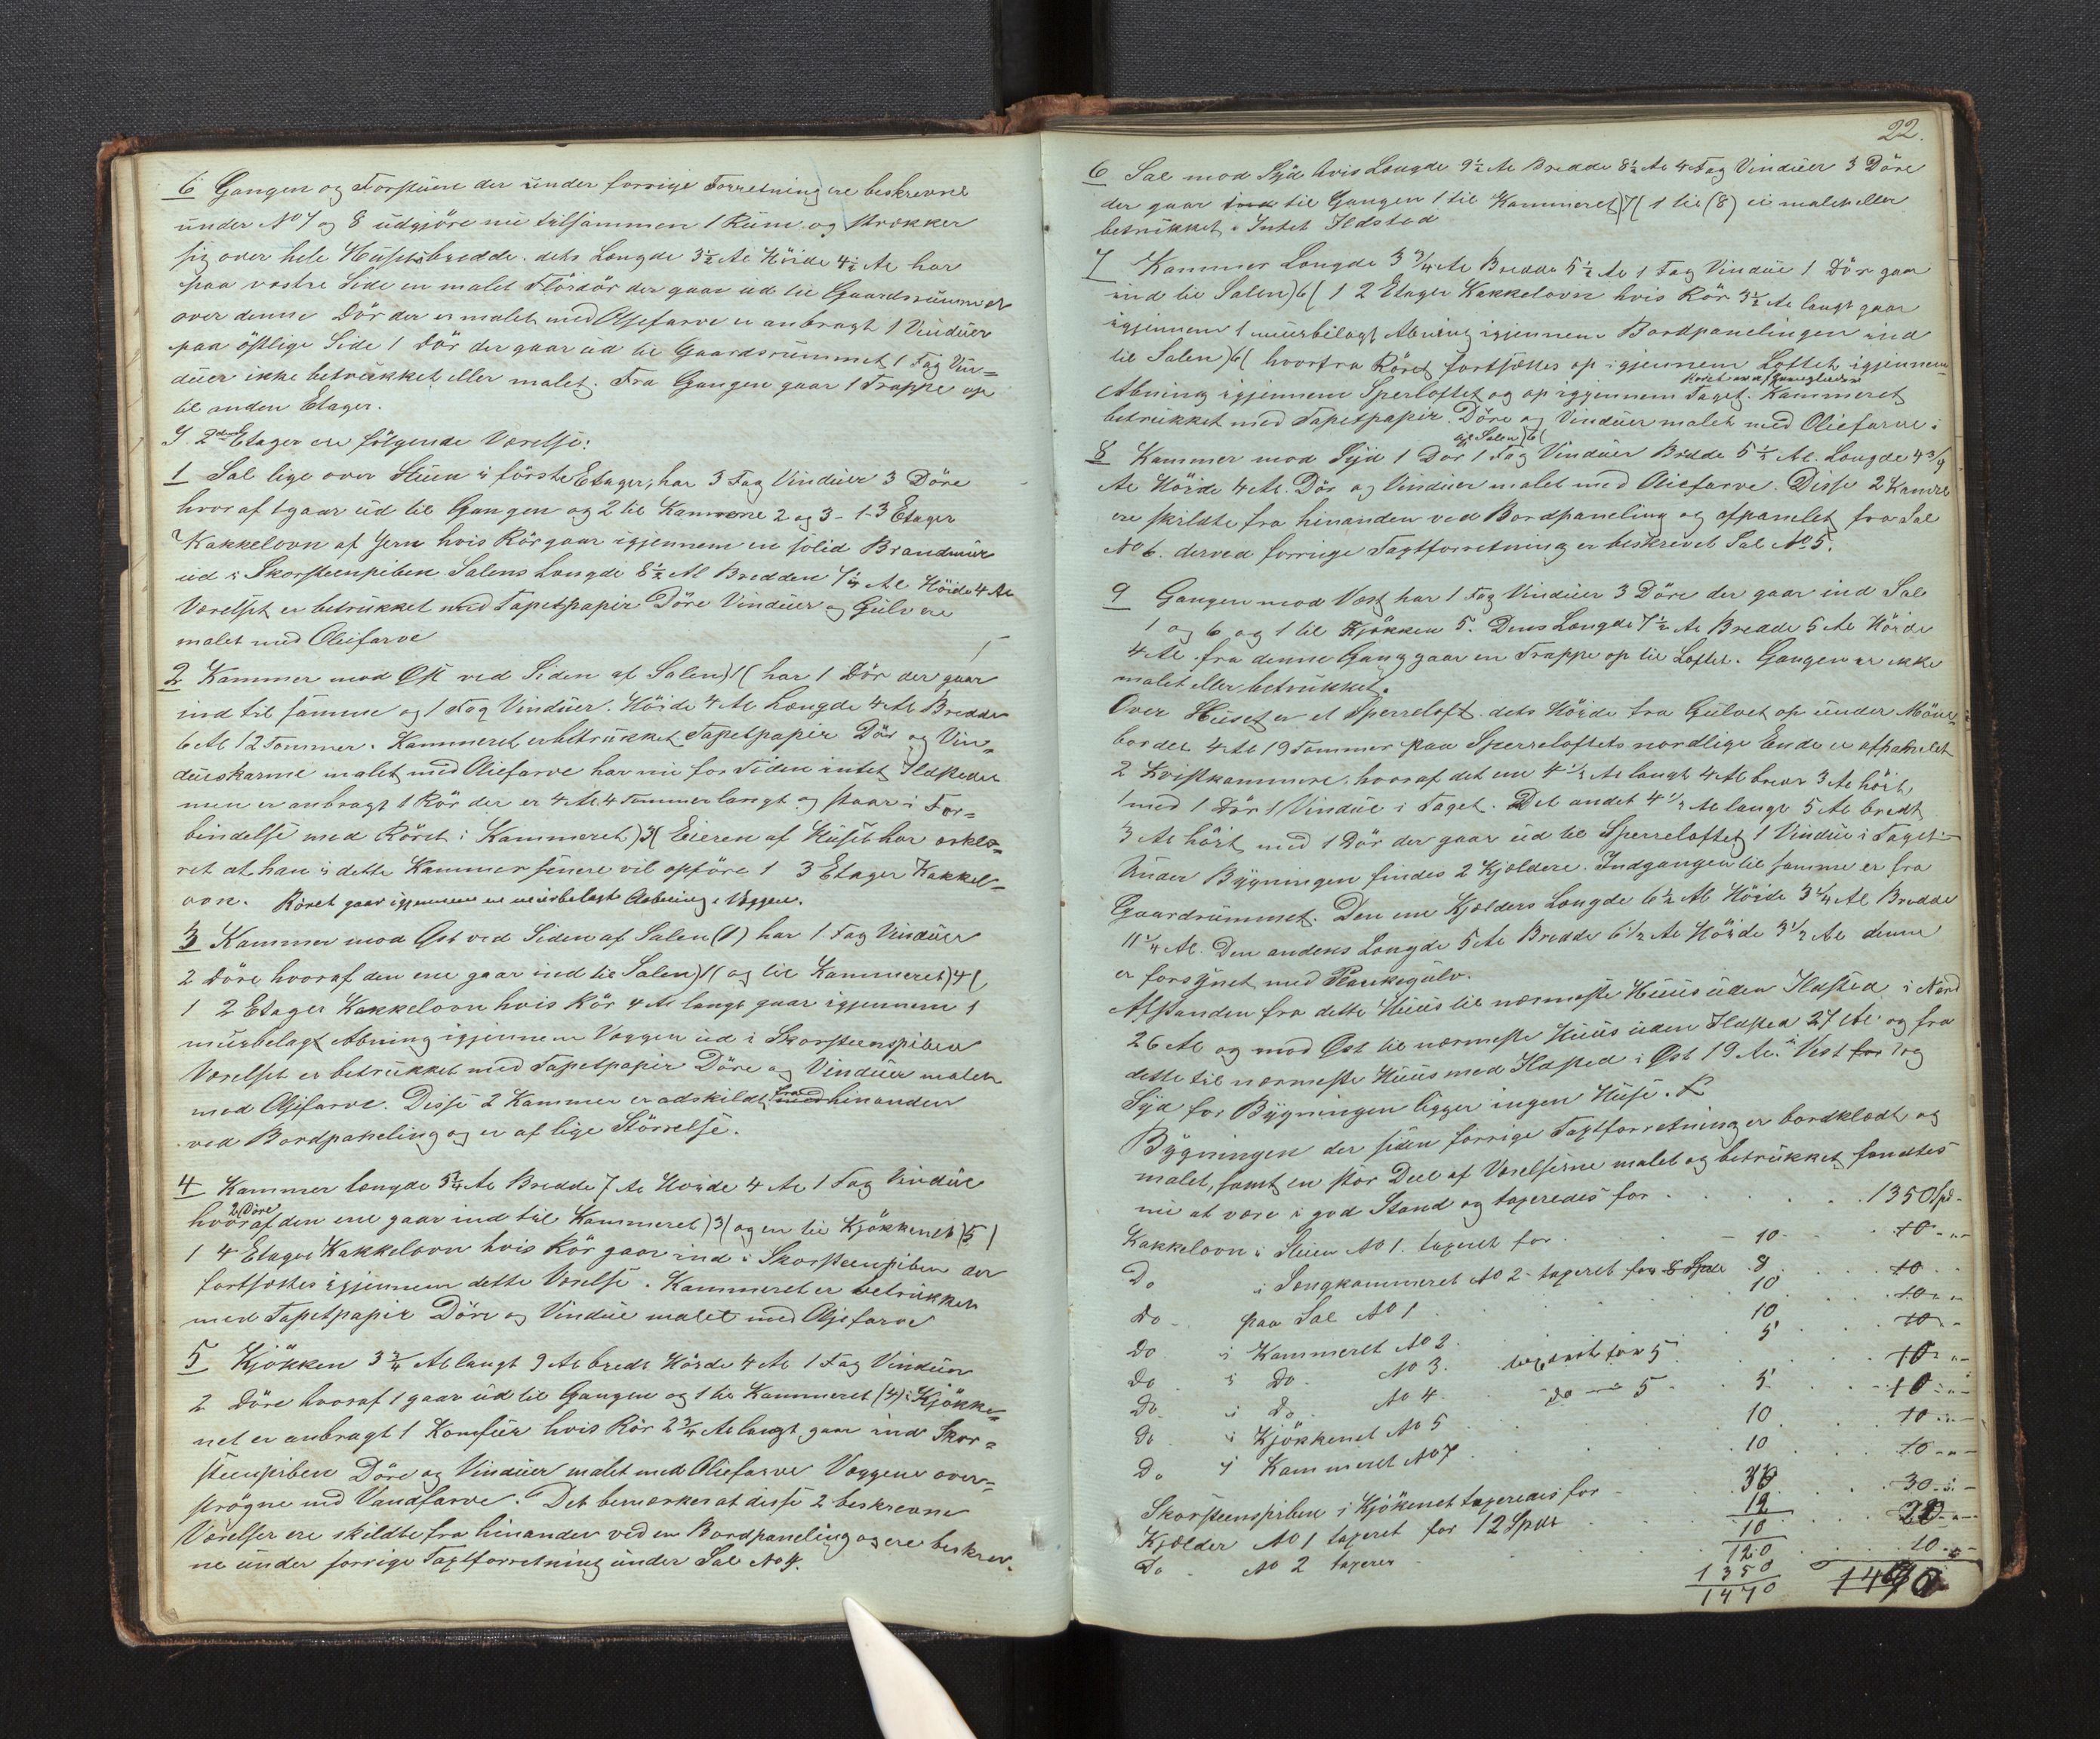 6 Gangen og Forstuen der under forrige Forretning ere beskrevne
under No 7 og 8 udgjöre nu tilsammen 1 Rum og strækker
sig over hele Husets bredde. dets Længde 3½ Al Höide 4½ Al har
paa vestre Side en malet Flöidör der gaar ud til Gaardsrummet
over denne Dör der er malet med Oljefarve er anbragt 1 Vinduer
paa östlige Side 1 Dör der gaar ud til Gaardsrummet 1 Fag Vin=
duer ikke betrukket eller malet. Fra Gangen gaar 1 Trappe op
til anden Etager.
I 2den Etager ere fölgende Værelse:
1 Sal lige over Stuen i förste Etager, har 3 Fag Vinduer 3 Döre
hvoraf 1 gaar ud til Gangen og 2 til Kamrene 2 og 3 - 1 3 Etager
Kakkelovn af Jern hvis Rör gaar igjennem en solid Brandmur
ud i Skorsteenpiben Salens Længde 8½ Al Bredden 7½ Al Höide 4 Al
Værelset er betrukket med Tapetpapir Döre Vinduer og Gulv ere
malet med Oliefarve
2 Kammer mod Öst ved Siden af Salen)1( har 1 Dör der gaar
ind til samme og 1 Fag Vinduer. Höide 4 Al Længde 4 Al Bredde
6 Al 12 Tommer. Kammeret er betrukket Tapetpapir Dör og Vin=
dueskarme malet med Oliefarve har nu for Tiden intet Ildsted
men er anbragt 1 Rör der er 4 Al 4 Tommer langt og staar i For=
bindelse med Röret i Kammeret)3( Eieren af Huset har erklæ=
ret at han i dette Kammer senere vil opföre 1 3 Etager Kakkel=
ovn. Röret gaar igjennem en muurbelagte Aabning i Væggen.
3 Kammer mod Öst ved Siden af Salen (1) har 1 Fag Vinduer
2 Döre hvoraf den ene gaar ind til Salen)1( og til Kammeret)4(
1 2 Etager Kakkelovn hvis Rör 4 Al langt gaar igjennem 1
muurbelagt Abning igjennem Væggen ud i Skorsteenspiben
Værelset er betrukket med Tapetpapir Döre og Vinduer malet
med Oljefarve. Disse 2 Kammer er adskildt fra med hinanden
ved Bordpaneling og er af lige Störrelse.
4 Kammer længde 3¾ Al Bredde 7 Al Höide 4 Al 1 Fag Vindue
2 Döre
hvoraf den ene gaar ind til Kammeret)3( og en til Kjökkenet)5(
1 4 Etager Kakkelovn hvis Rör gaar ind i Skorsteenpiben der
fortsættes igjennem dette Værelse. Kammeret er betrukket
med Tapetpapir Döre og Vindue malet med Oljefarve
5 Kjökken 3¾ Al langt 9 Al bredt Höide 4 Al 1 Fag Vinduer
2 Döre hvoraf 1 gaar ud til Gangen og 1 til Kammeret (4) i Kjökke=
net er anbragt 1 Komfuir hvis Rör 2¾ Al langt gaar ind Skor=
steenpiben Döre og Vinduer malet med Oliefarve Væggene over=
strögne med Vandfarve. Det bemærkes at disse 2 beskrevne
Værelser ere skildte fra hinander ved en Bordpaneling og ere beskrev=
ne under forrige Taxtforretning under Sal No 4.
22.
6 Sal mod Syd hvis Længde 9½ Al Bredde 8½ Al 4 Fag Vinduer 3 Döre
der gaar ind til Gangen 1 til Kammeret)7( 1 til (8) ei malet eller
betrukket. Intet Ildsted
7 Kammer Længde 3¾ Al Bredde 5½ Al 1 Fag Vindue 1 Dör gaar
ind til Salen)6( 1 2 Etager Kakkelovn hvis Rör 3½ Al langt gaar
igjennem 1 muurbelagt Abning igjennem Bordpanelingen ind
til Salen)6( hvorfra Röret fortsættes op igjennem Loftet igjennem
Abning igjennem Sperloftet og op igjennem Taget. Kammeret
betrukket med Tapetpapir. Döre og Vinduer malet med Oliefarve i
til Salen)6(
8 Kammer mod Syd 1 Dör 1 Fag Vinduer Bredde 5½ Al. Længde 4¾
Al Höide 4 Al. Dör og Vinduer malet med Oliefarve. Disse 2 Kamre
ere skildte fra hinanden ved Bordpaneling og afpanelet fra Sal
No 6. derved forrige Taxtforretning er beskrevet Sal No 5.
9 Gangen mod Vest har 1 Fag Vinduer 3 Döre der gaar ind Sal
1 og 6 og 1 til Kjökken 5. Dens Længde 7½ Al Bredde 5 Al Höide
4 Al. fra denne Gang gaar en Trappe op til Loftet. Gangen er ikke
malet eller betrukket.
Over Huset er et Sperreloft. dets Höide fra Gulvet op under Möne=
bordet 4 Al 19 Tommer paa Sperreloftets nordlige Ende er afpanelet
2 Kvistkammere, hvoraf det ene 4½ Al langt 4 Al bredt 3 Al höit,
med 1 Dör 1 Vindue i Taget. Det andet 4½ Al langt 5 Al bredt
3 Al höit med 1 Dör der gaar ud til Sperreloftet 1 Vindue i Taget.
Under Bygningen findes 2 Kjældere. Indgangen til samme er fra
Gaardrummet. Den ene Kjælders Længde 6½ Al Höide 3¼ Al Bredde
11¼ Al. Den andens Længde 5 Al Bredde 6½ Al Höide 3½ Al denne
er forsynet med Plankegulv.
Afstanden fra dette Huus til nærmeste Huus uden Ildsted i Nord
26 Al og mod Öst til nærmeste Huus uden Ildsted 27 Al og fra
dette til nærmeste Huus med Ildsted i Öst 19 Al. Vest for og
Syd for Bygningen ligger ingen Huse.
Bygningen der siden forrige Taxtforretning er bordklædt og
malet, samt en stor Deel af Værelserne malet og betrukket fandtes
nu at være i god Stand og taxeredes for . . . 1350 Spd
Kakkelovn i Stuen No 1. taxeret for . . 10 . . 10
Do i Sengkammeret No 2 taxeret for 8 Spd 8 . . 10
Do paa Sal No 1 . . 10 . . 10
Do i Kammeret No 2 . . 10 . . 10
Do i Do No 3. taxeret for 5 . . 5 . . 10
Do i Do No 4 Do 5 . . 5 . . 10
Do i Kjökkenet No 5 . . 10 . . 10
Do i Kammeret No 7 . . 10 . . 10
Skorsteenspiben i Kjökenet taxeredes for . . 30 . . 30
Kjælder No 1 taxeret for 12 Spdr . . 12 . . 20
Do No 2 taxeret . . 10 . . 10
120
1350
1470 1470